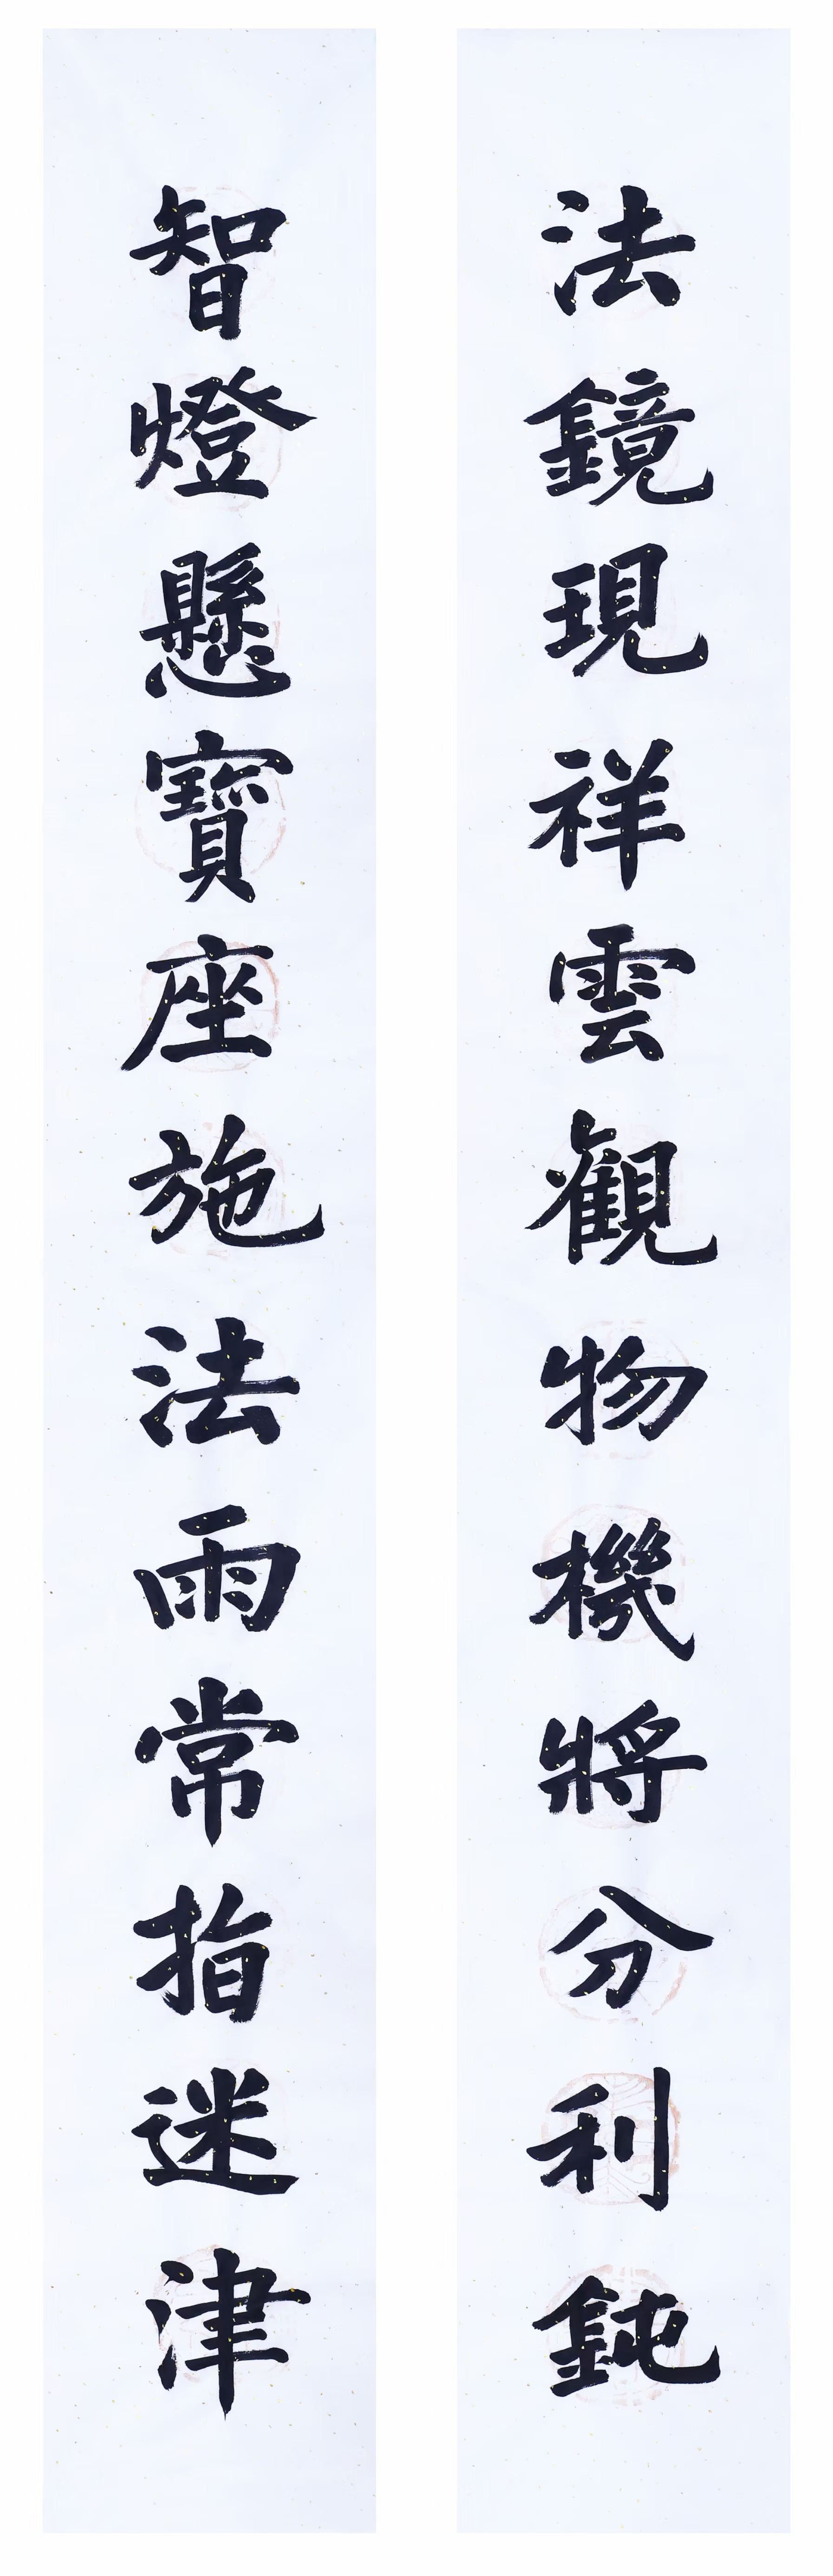 法鏡現祥雲觀物機將分利鈍
智燈懸寶座施法雨常指迷津